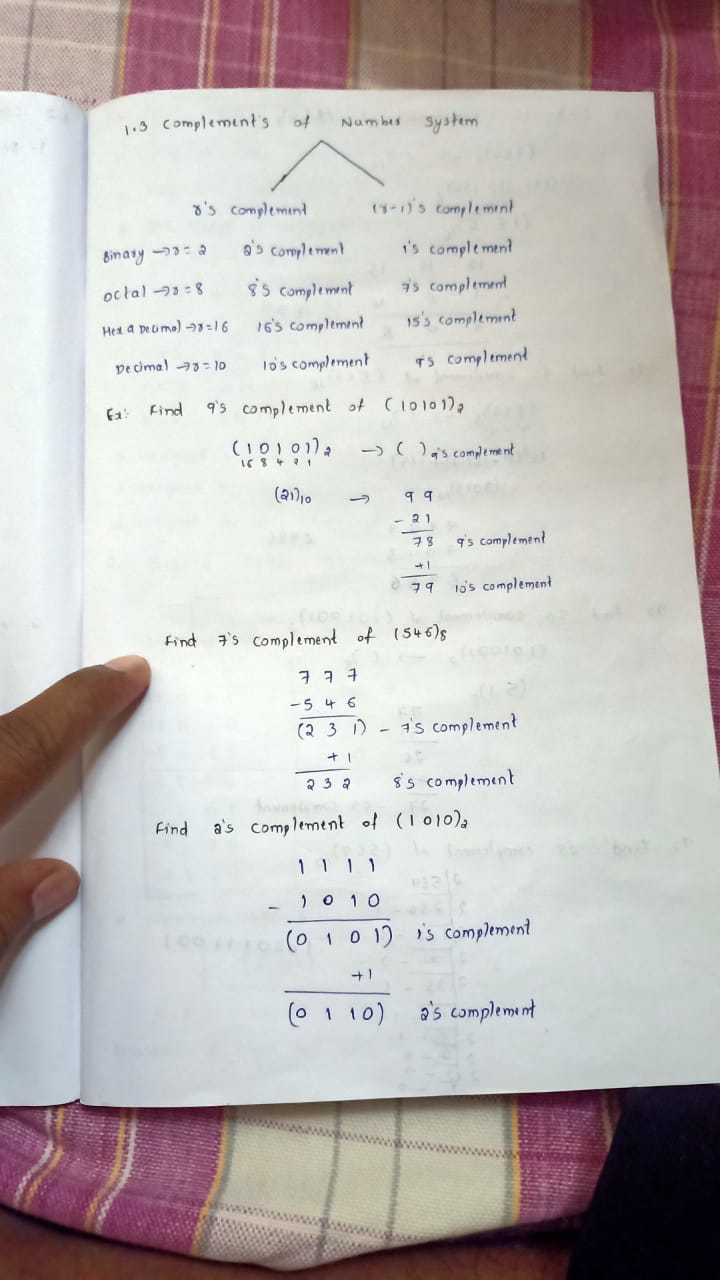 1.3 Complement's of Number System
r's complement (r-1)'s complement
Binary → r = 2 2's complement 1's complement
octal → r = 8 8's complement 7's complement
Hexa Decimal → r = 16 16's complement 15's complement
Decimal → r = 10 10's complement 9's complement
Ex: Find 9's complement of (10101)2
(10101)2 → ( ) 9's complement
16 8 4 2 1
(21)10 → 99
- 21
78 9's complement
+1
79 10's complement
Find 7's complement of (546)8
7 7 7
- 5 4 6
(2 3 1) - 7's complement
+ 1
2 3 2 8's complement
Find 2's complement of (1010)2
1 1 1 1
- 1 0 1 0
(0 1 0 1) 1's complement
+1
(0 1 1 0) 2's complement